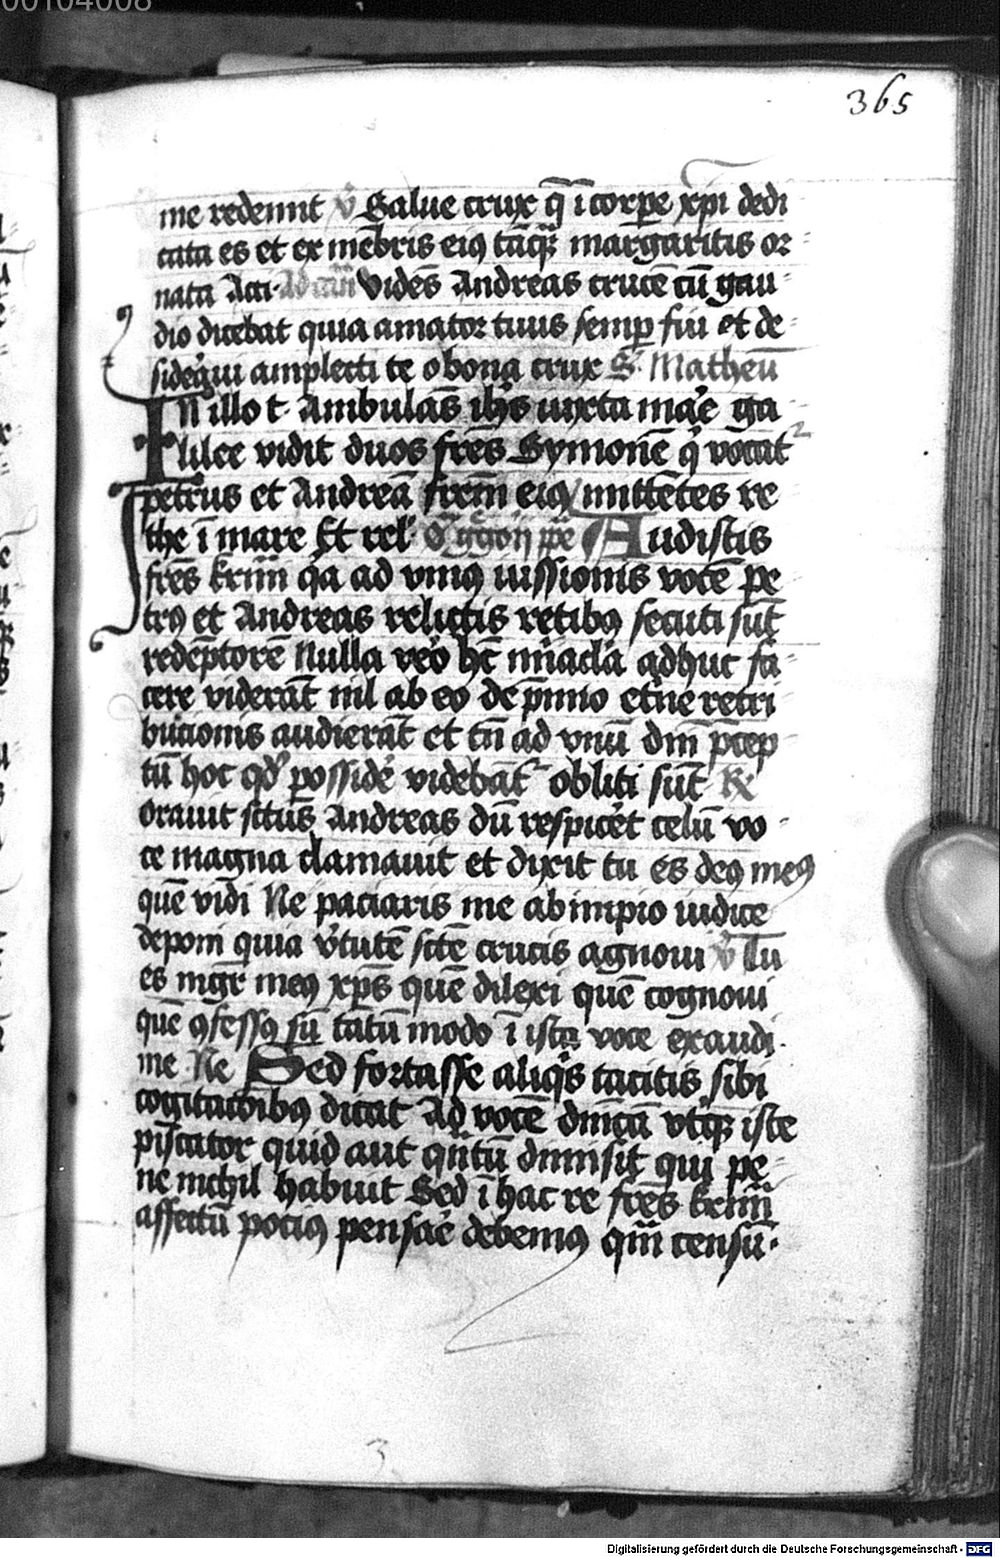 00104008
365
me redemit v̓ Salue crux q̄ ī corꝑe xp̄i dedi
cata es et ex mēbris eiꝰ tāqȝ margaritis or
nata Acci. Ad cāt Vidēs Andreas crucē cū gau
dio dicebat quia amator tuus semꝑ fui et de
sid̓aui amplecti te o bona crux S. Matheū
IN illo t. Ambulās ih̄s iuxta mare ga
lilee vidit duos fr̄es Symonē q̓ vocat̉
petrus et Andreā frēm eiꝰ mittētes re
the ī mare Et rel. Audistis
fr̄es kr̄im̄ qa ad vniꝰ iussionis vocē pe
trꝰ et Andreas relictis retibꝰ secuti sūt
redēptorē Nulla vēo hc̄ mīacla adhuc fa
cere viderāt nil ab eo de p̄mio etīne retri
bucionis audierāt et tn̄ ad vnū dn̄i p̄cep
tū hoc qd̓ possid̓e videbāt̉ obliti sūt R̸
Orauit sctūs Andreas dū respic̓et celū vo
ce magna clamauit et dixit tu es deꝰ meꝰ
quē vidi Ne paciaris me ab impio iudice
deponi quia v̓tutē scē crucis agnoui v̓ Tu
es mgr̄ meꝰ xp̄s quē dilexi quē cognoui
quē ꝯfessꝰ sū tātū modo ī ista voce exaudi
me Ne Sed fortasse aliq̓s tacitis sibi
cogitacōibꝰ dicat Ad vocē dn̄icā vtqȝ iste
piscator quid aut qn̄tū dimisit qui pe
ne nichil habuit Sed ī hac re fr̄es kr̄im̄
affectū pociꝰ pensar̓e debemꝰ qm̄ censū.
3
Digitalisierung gefördert durch die Deutsche Forschungsgemeinschaft - DFG